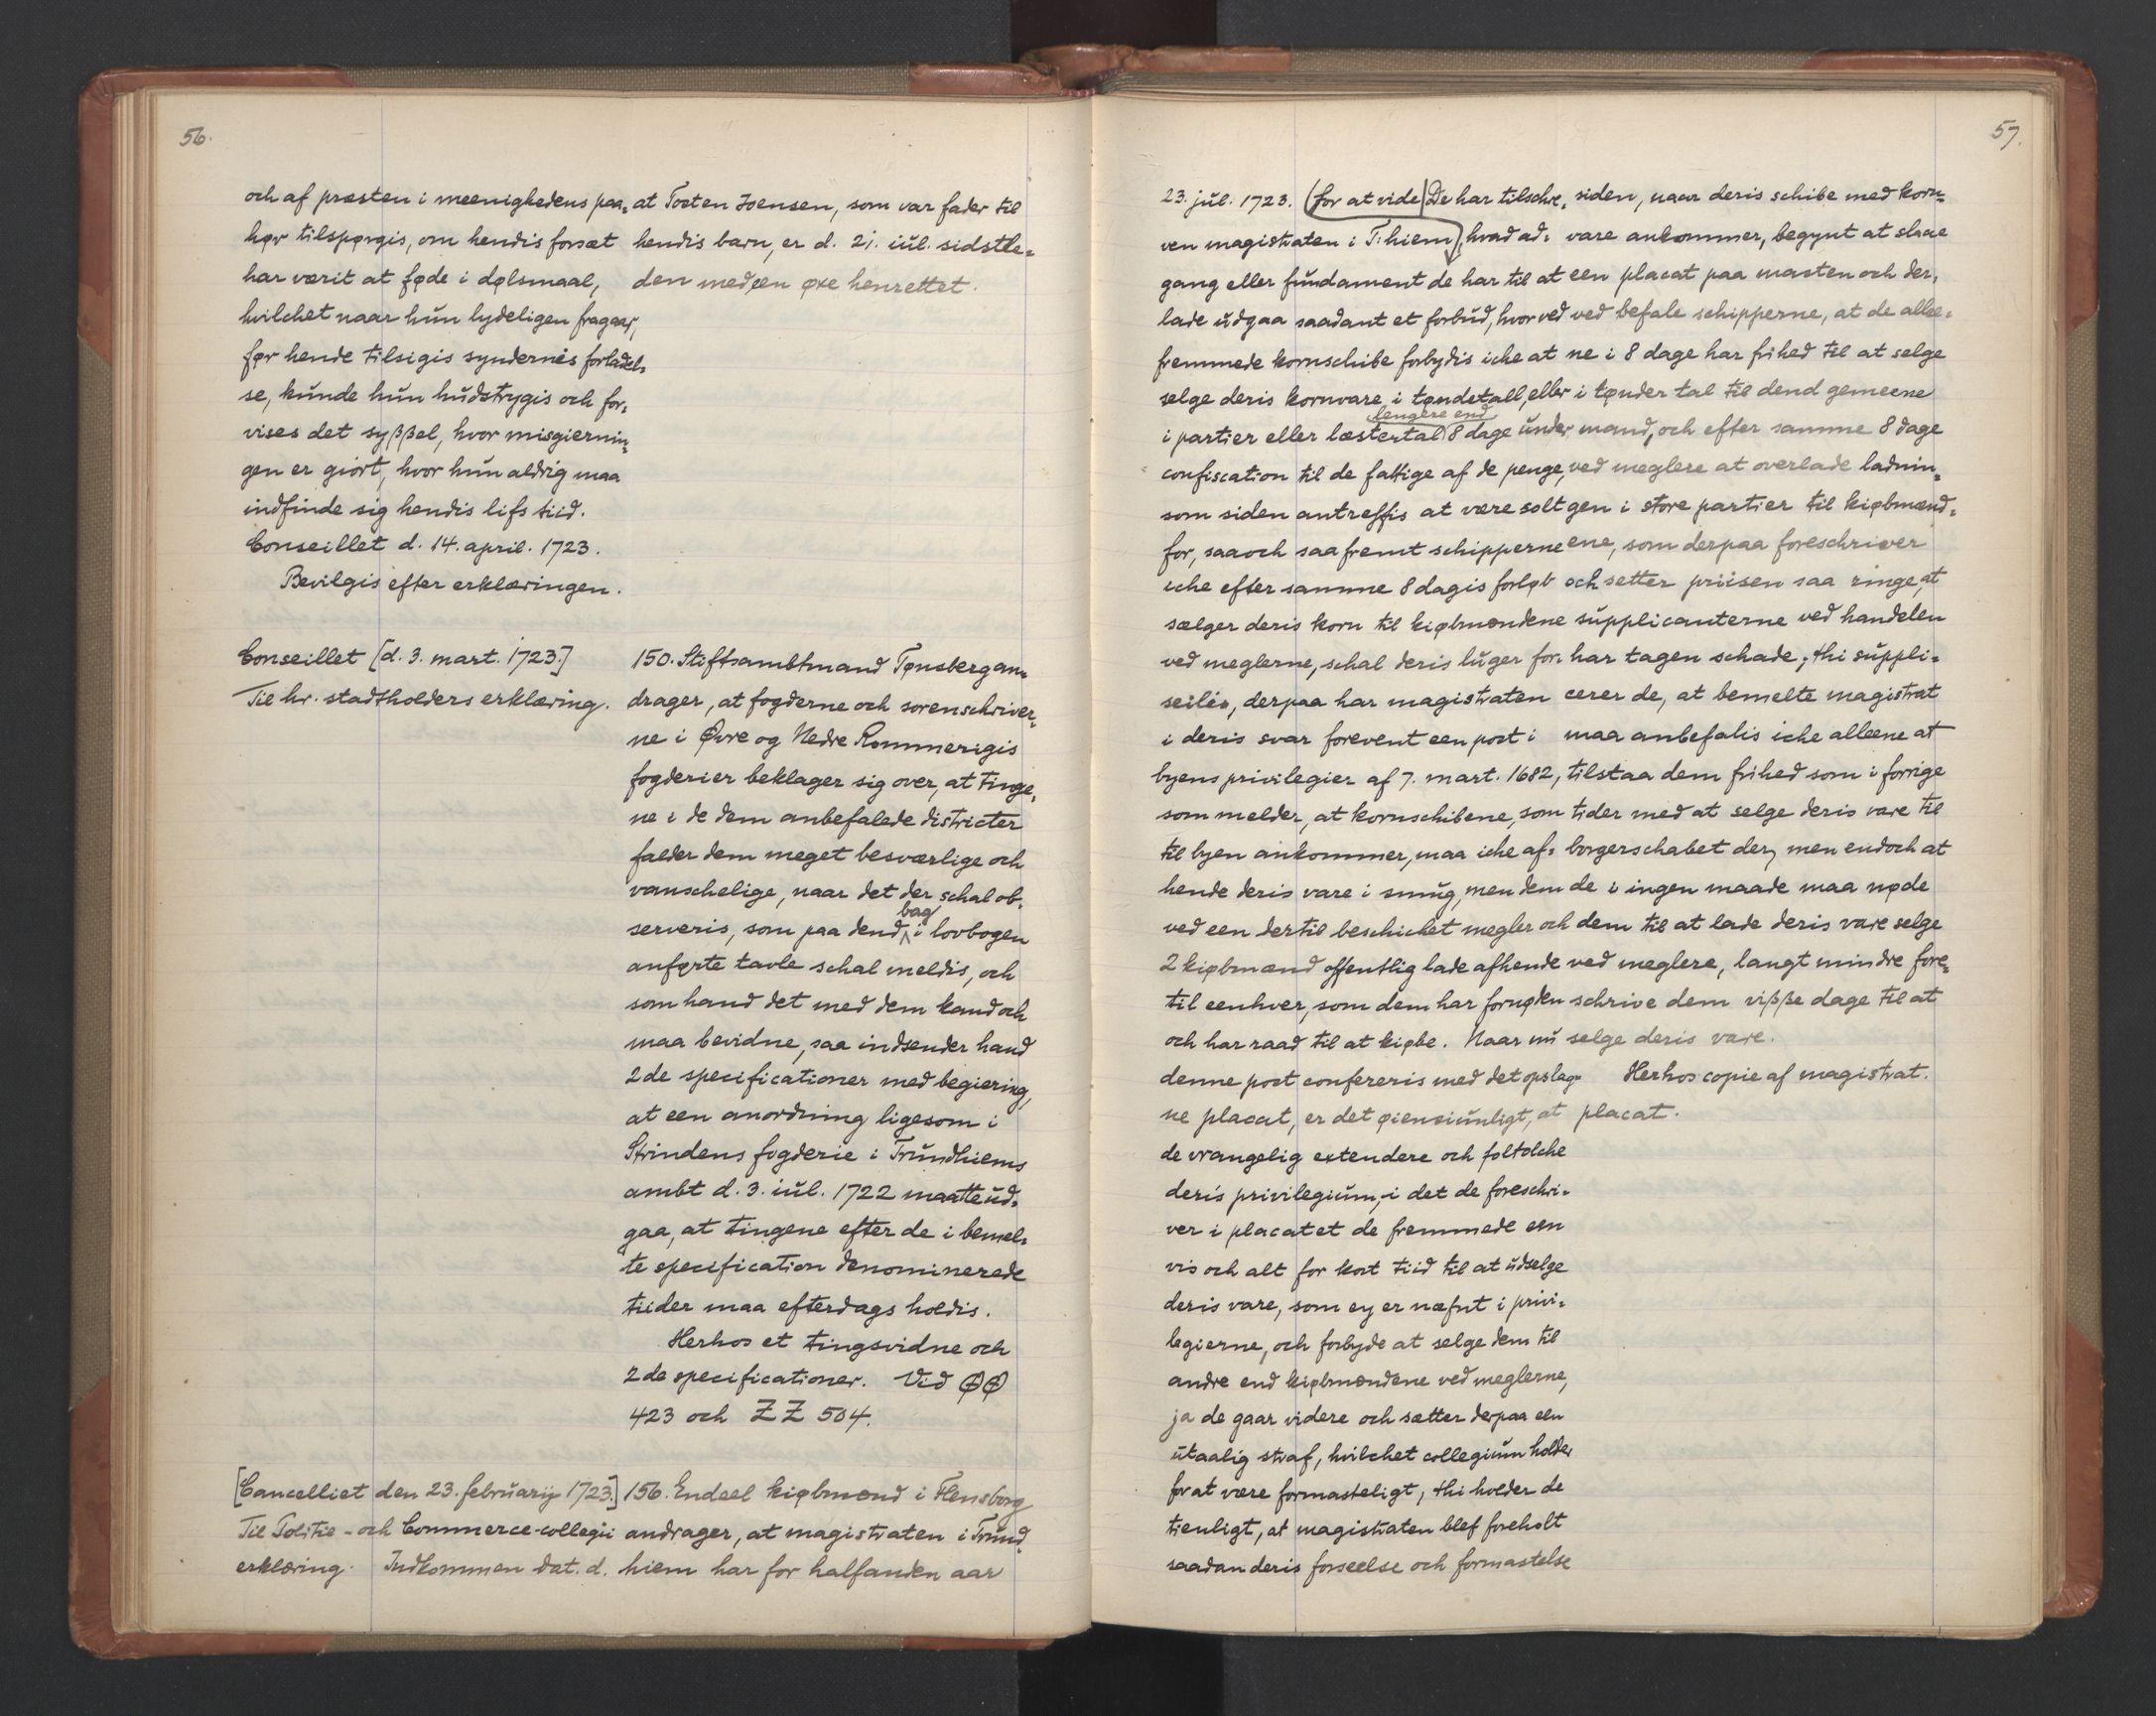 56.
och af præsten i meenighedens paa=
hør tilspørgis, om hendis forsæt
har værit at føde i dølsmaal,
hvilchet naar hun lydeligen fragaar,
før hende tilsigis syndernis forladel=
se, kunde hun hudstrygis och for=
vises det syßßel, hvor misgiernin=
gen er giort, hvor hun aldrig maa
indfinde sig hendis lifs tiid.
Conseillet d. 14. april. 1723.
Bevilgis efter erklæringen.
at Tosten Joensen, som var fader til
hendis barn, er d. 21. iul. sidstle=
den med een øxe henrettet.
Conseillet [d. 3. mart. 1723.]
Til hr. stadtholders erklæring.
150. Stiftsambtmand Tønsberg an=
drager, at fogderne och sorenschriver=
ne i Øvre og Nedre Rommerigis
fogderier beklager sig over, at tinge=
ne i de dem anbefalede districter
falder dem meget besværlige och
vanschelige, naar det der schal ob=
serveris, som paa dend bag i lovbogen
anførte tavle schal meldis, och
som hand det med dem kand och
maa bevidne, saa indsender hand
2de specificationer med begiering,
at een anordning ligesom i
Strindens fogderie i Trundhiems
ambt d. 3. iul. 1722 maatte ud=
gaa, at tingene efter de i bemel=
te specification denominerede
tiider maa efterdags holdis.
Herhos et tingsvidne och
2de specificationer. Vid ØØ
423 och ZZ 504.
[Cancelliet den 23. februarij 1723.]
Til Politie- och Commerce-collegii
erklæring. Indkommen dat. d.
156. Endeel kiøbmænd i Flensborg
andrager, at magistraten i Trund=
hiem har for halfanden aar
57.
23. jul. 1723. (for at vide) De har tilschre=
ven magistraten i T:hiem, hvad ad=
gang eller fundament de har til at
lade udgaa saadant et forbud, hvorved
fremmede kornschibe forbydis iche at
selge deris kornvare i tøndetall, eller
i partier eller læstertal lengere end 8 dage under
confiscation til de fattige af de penge,
som siden antreffis at være solt
for, saa och saafremt schipperne
iche efter samme 8 dagis forløb
sælger deris korn til kiøbmændene
ved meglerne, schal deris luger for=
seilis, derpaa har magistraten
i deris svar forevent een post i
byens privilegier af 7. mart. 1682,
som melder, at kornschibene, som
til byen ankommer, maa iche af=
hende deris vare i smug, men dem
ved een dertil beschichet megler och
2 kiøbmænd offentlig lade afhende
til eenhver, som dem har fornøden
och har raad til at kiøbe. Naar nu
denne post confereris med det opslag=
ne placat, er det øiensiunligt, at
de vrangelig extendere och foltolche
deris privilegium, i det de foreschri=
ver i placatet de fremmede een
vis och alt for kort tiid til at udselge
deris vare, som ey er næfnt i privi=
legierne, och forbyde at selge dem til
andre end kiøbmændene ved meglerne,
ja de gaar videre och sætter derpaa een
utaalig straf, hvilchet collegium holder
for at være formasteligt, thi holder de
tienligt, at magistraten blef foreholt
saadan deris forseelse och formastelse
siden, naar deris schibe med korn=
vare ankommer, begynt at slaae
een placat paa masten och der=
ved befale schipperne, at de allee=
ne i 8 dage har frihed til at selge
i tønder tal til dend gemeene
mand, och efter samme 8 dage
ved meglere at overlade ladnin=
gen i store partier til kiøbmænd=
ene, som derpaa foreschriver
och setter priisen saa ringe, at
supplicanterne ved handelen
har tagen schade; thi suppli=
cerer de, at bemelte magistrat
maa anbefalis iche alleene at
tilstaa dem frihed som i forrige
tider med at selge deris vare til
borgerschabet der, men endoch at
de i ingen maade maa nøde
dem til at lade deris vare selge
ved meglere, langt mindre fore=
schrive dem vißße dage til at
selge deris vare.
Herhos copie af magistrat.
placat.